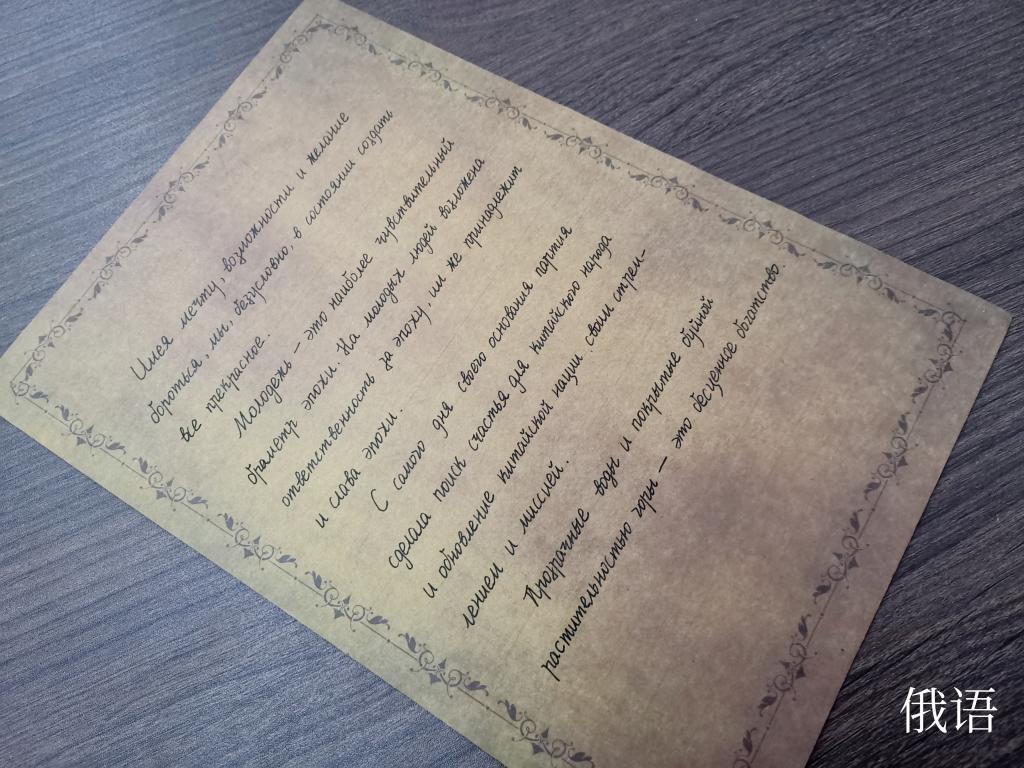 Имея мечту, возможности и желание
бороться, мы, безусловно, в состоянии создать
все прекрасное.
Молодежь — это наиболее чувствительный
браметр эпохи. На молодых людей возложена
ответственность за эпоху, им же принадлежит
и слава эпохи.
С самого дня своего основания партия
сделала поиск счастья для китайского народа
и обновление китайской нации своим стрем-
лением и миссией.
Прозрачные воды и покрытые буйной
растительностью горы — это бесценное богатство.
俄语